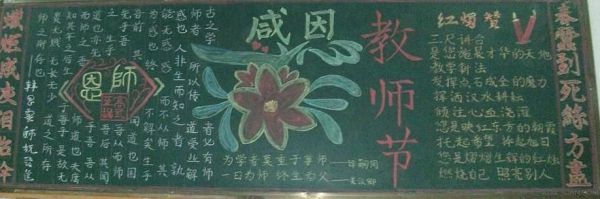 春蚕到死絲方盡
感恩
教师节
红烛赞
三尺讲台
是您施展才华的天地
教学新法
发挥点石成金的魔力
挥洒汗水耕耘
倾注心血浇灌
您是映红东方的朝霞
托起希望 托起旭日
您是熠熠生辉的红烛
燃烧自己 照亮别人
为学者莫重于尊师
一日为师 终生为父 —关汉卿
古之学者必有师
师者 所以传道受业解
惑也 人非生而知之者 孰
能无惑 惑而不从师 其
为惑也 终不解矣 生乎
吾前 其闻道也 固
先乎吾 吾从而师
之 生乎吾后 其闻
道也 亦先乎吾 吾从
而师之 吾师道也 夫庸
知其年之先后生于吾乎 是故无
贵无贱 无长无少 道之所存
师之所存也
師恩
炬成灰泪始干